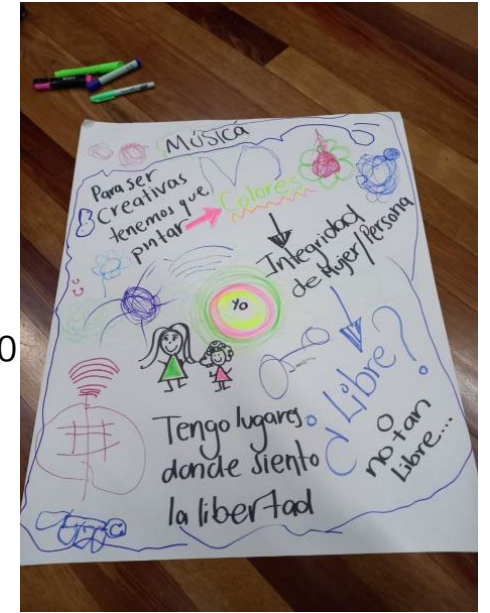 Música
Para ser
Creativas
tenemos que
pintar
Colores
Integridad
de Mujer/Persona
Yo
¿Libre?
O
no tan
Libre...
Tengo lugares
donde siento
la libertad
0